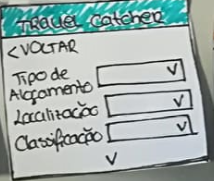 TRAVEL CATCHER
<VOLTAR
Tipo de
Alojamento
Localização
Classificação